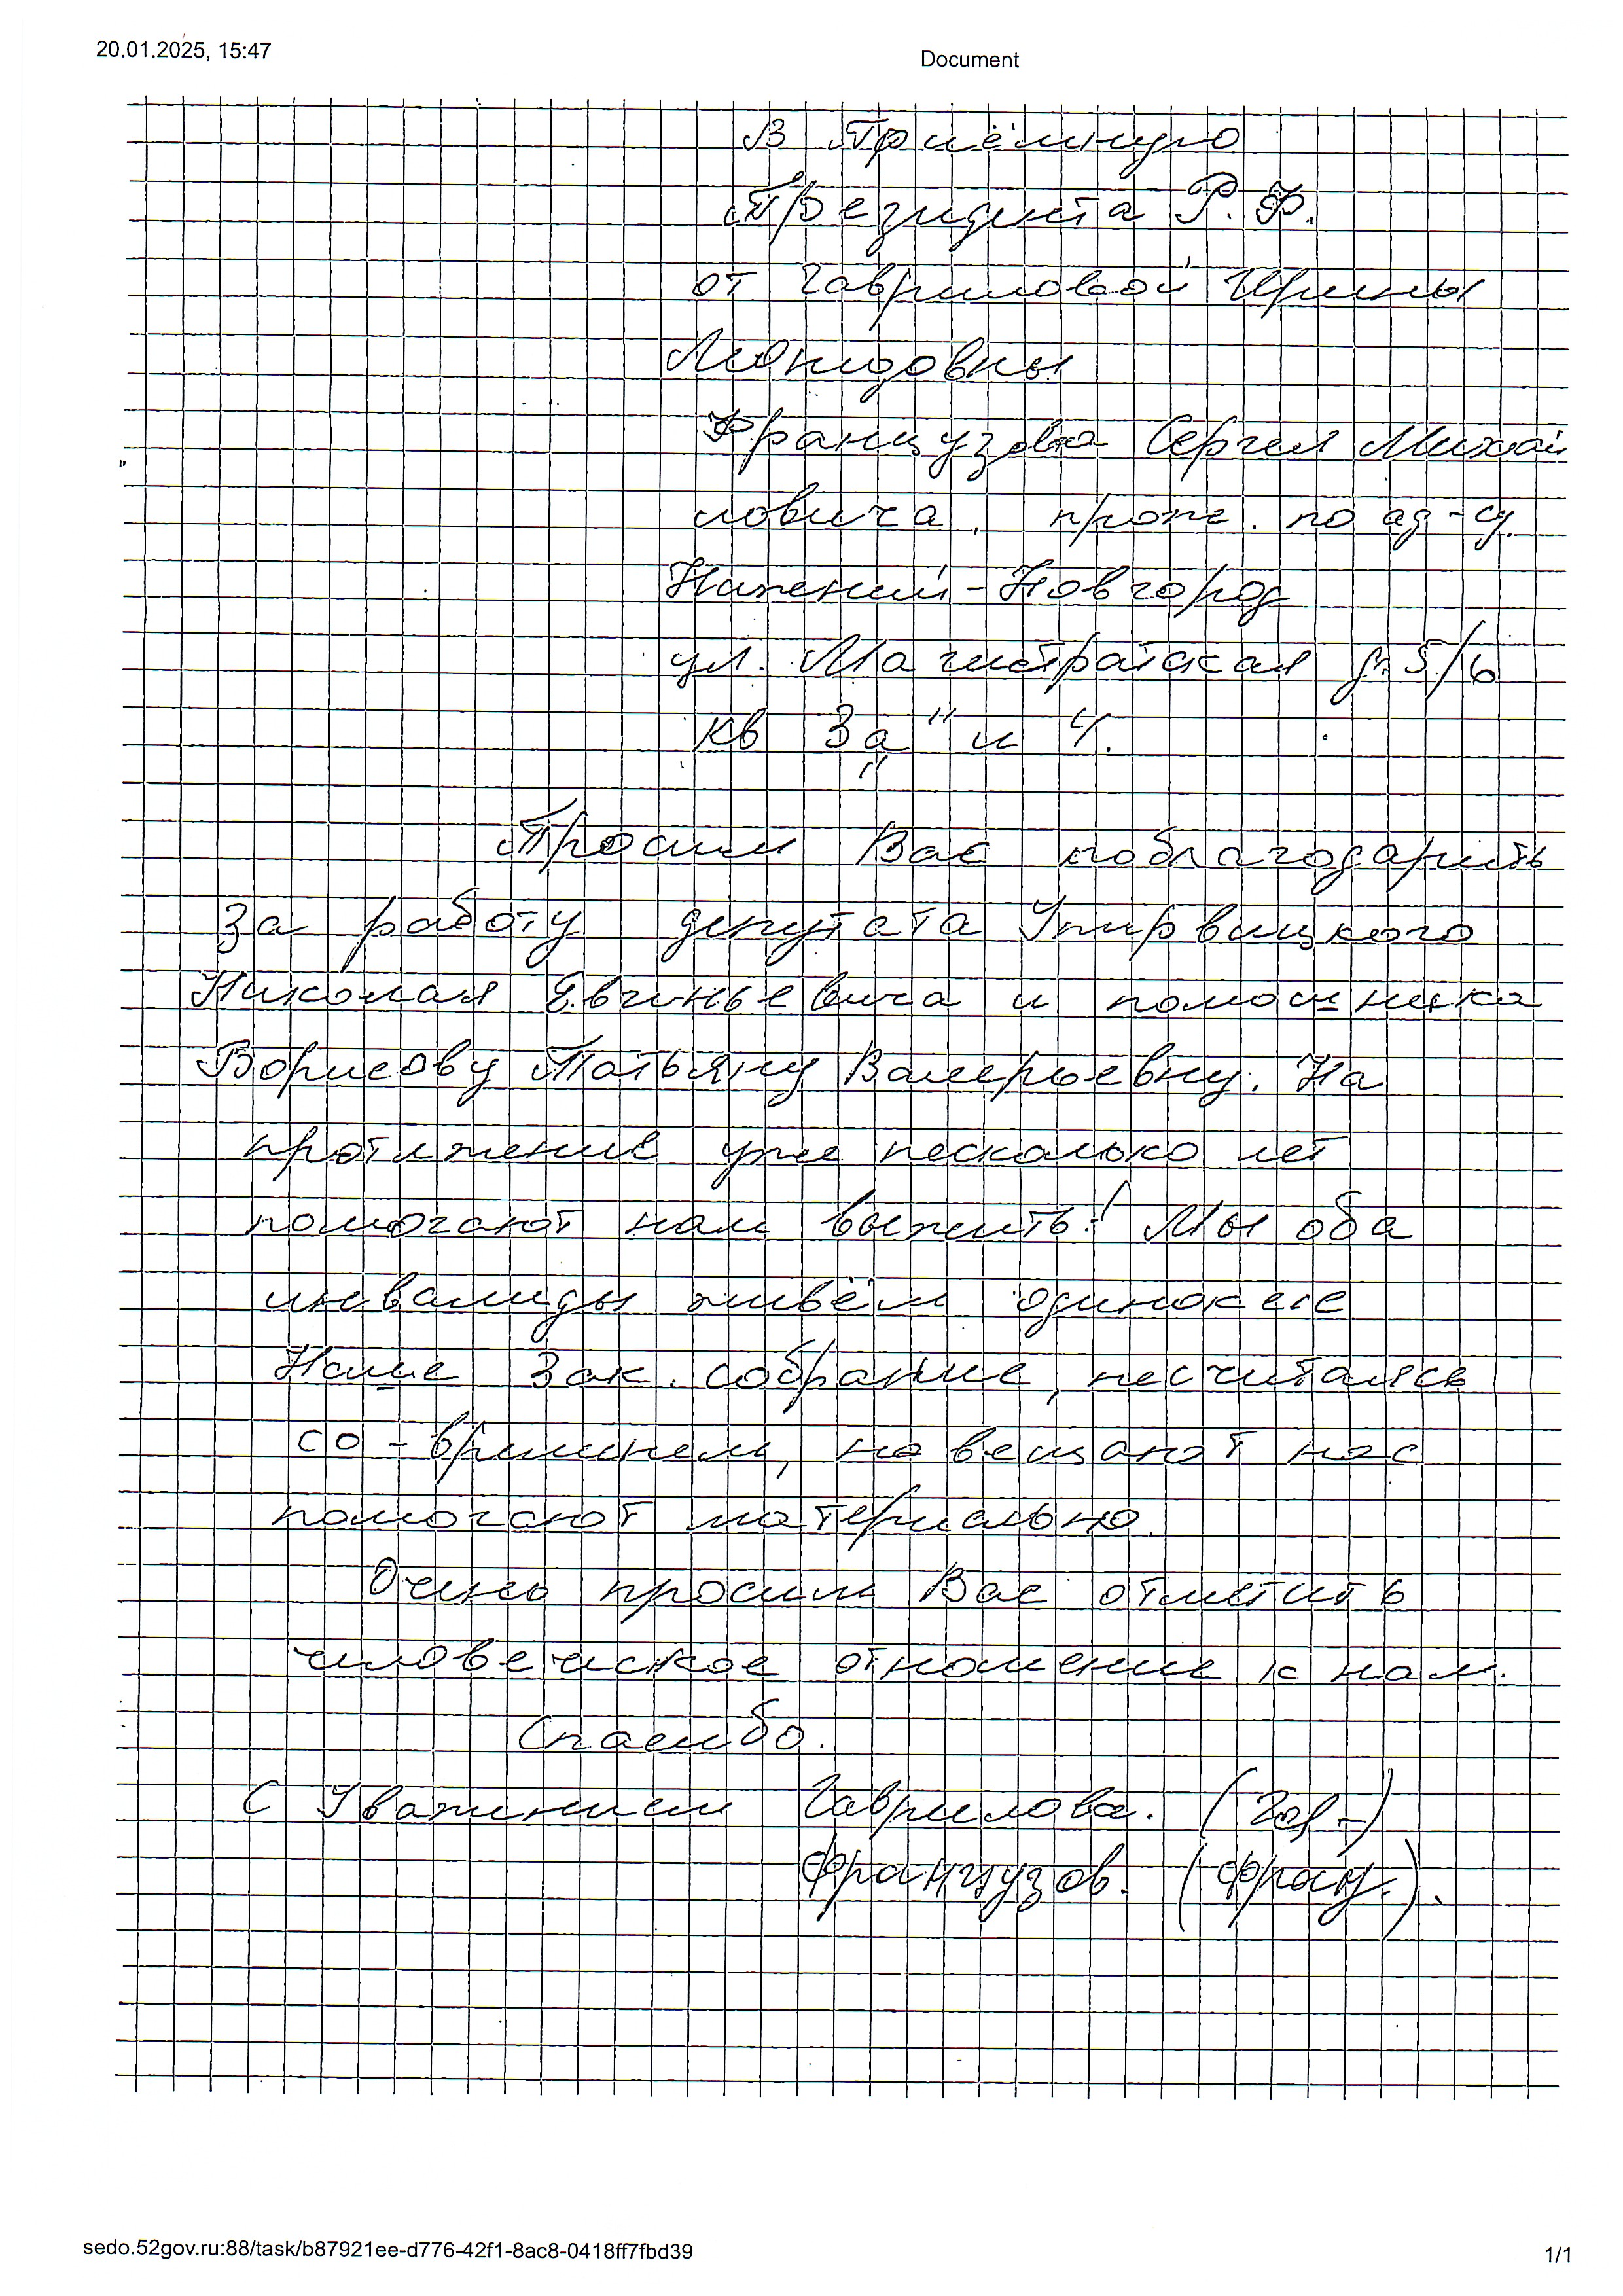 20.01.2025, 15:47
Document
В Приёмную
Президента Р.Ф.
от Гавриловой Ирины
Леонидовны
Французова Сергея Михай
ловича, прож. по ад-су.
Нижний-Новгород
ул. Магистратская д. 5/6
кв 3"а" и 4.
Просим Вас поблагодарить
за работу депутата
Николая Евгеньевича и помощника
Борисову Татьяну Валерьевну. На
протяжение уже несколько лет
помогают нам выжить! Мы оба
инвалиды живём одинокие
Наше Зак. собрание, несчитаясь
со-временем, навещают нас
помогают материально.
Очень просим Вас отметить
человеческое отношение к нам.
Спасибо.
С Уважением Гаврилова. (Гав-)
Французов. (Франц.).
sedo.52gov.ru:88/task/b87921ee-d776-42f1-8ac8-0418ff7fbd39
1/1